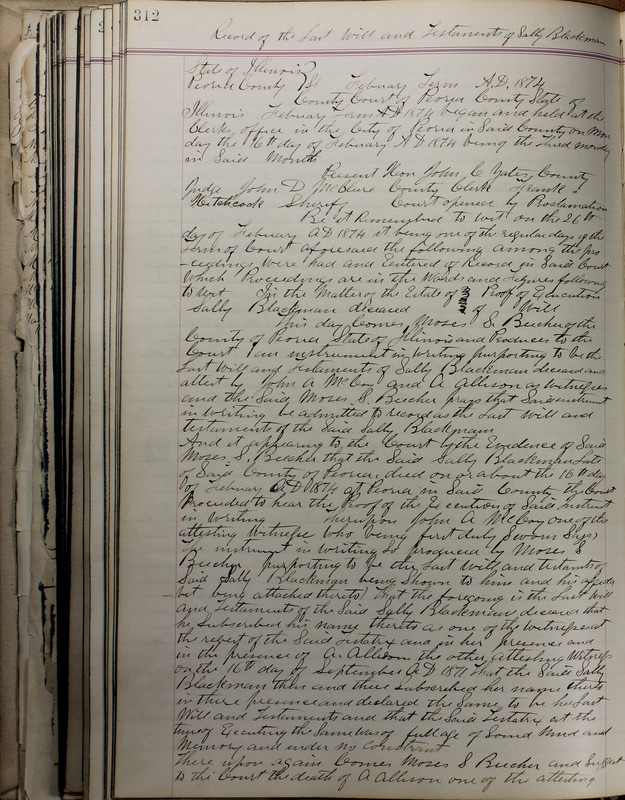 312
Record of the Last Will and Testaments of Sally Blackman
State of Illinois
Peoria County } SS Febuary Term A.D. 1874
County Court of Peoria County State of
Illinois Febuary Term A D 1874 began and held at the
Clerks office in the City of Peoria in Said County on Mon
day the 16th day of Febuary A D 1874 being the third monday
in Said Month
Present Hon John C Yates County
Judge John D McClure County Clerk Frank
Hitchcock Sheriff Court opened by Proclamation
Be it Remembered to wit on the 26th
day of Febuary A D 1874 it being one of the regular days of the
Term of Court aforesaid the following among the pro
ceedings were had and Entered of Record in Said Court
which Proceedings are in the Words and figures following
to wit In the Matter of the Estate of } Proof of Execution
Sally Blackman deceased } of Will
This day Comes Moses S. Beecher of the
County of Peoria State of Illinois and Produces to the
Court an instrument in writing purporting to be the
Last Will and Testaments of Sally Blackman deceased and
attest by John A McCoy and A Allison as Witnesses
and the Said Moses S. Beecher prays that Said instrument
in writing be admitted to record as the Last Will and
testaments of the Said Sally Blackman
And it appearing to the Court by the Evidence of Said
Moses S. Beecher that the Said Sally Blackman Late
of Said County of Peoria died on or about the 16th day
of Febuary A D 1874 at Peoria in Said County the Court
Proceeded to hear the Proof of the Execution of Said instrument
in writing thereupon John A McCoy one of the
attesting Witnesses who being first duly Sworn Says
The instrument in writing So produced by Moses S
Beecher purporting to be the Last Will and testaments of
Said Sally Blackman being Shown to him and his affida
vit being attached thereto) that the foregoing is the Last Will
and Testaments of the Said Sally Blackman deceased that
he Subscribed his name thereto as one of the Witnesses at
the request of the Said Testatrix and in her presence and
in the presence of A. Allison the other attesting Witness
on the 16th day of September A D 1871 that the Said Sally
Blackman then and there Subscribed her name thereto
in there presence and declared the Same to be her Last
Will and Testaments and that the Said Testatrix at the
time of Executing the Same was of full age of Sound Mind and
Memory and under no Constraint
there upon again Comes Moses S Beecher and Suggest
to the Court the death of A Allison one of the attesting